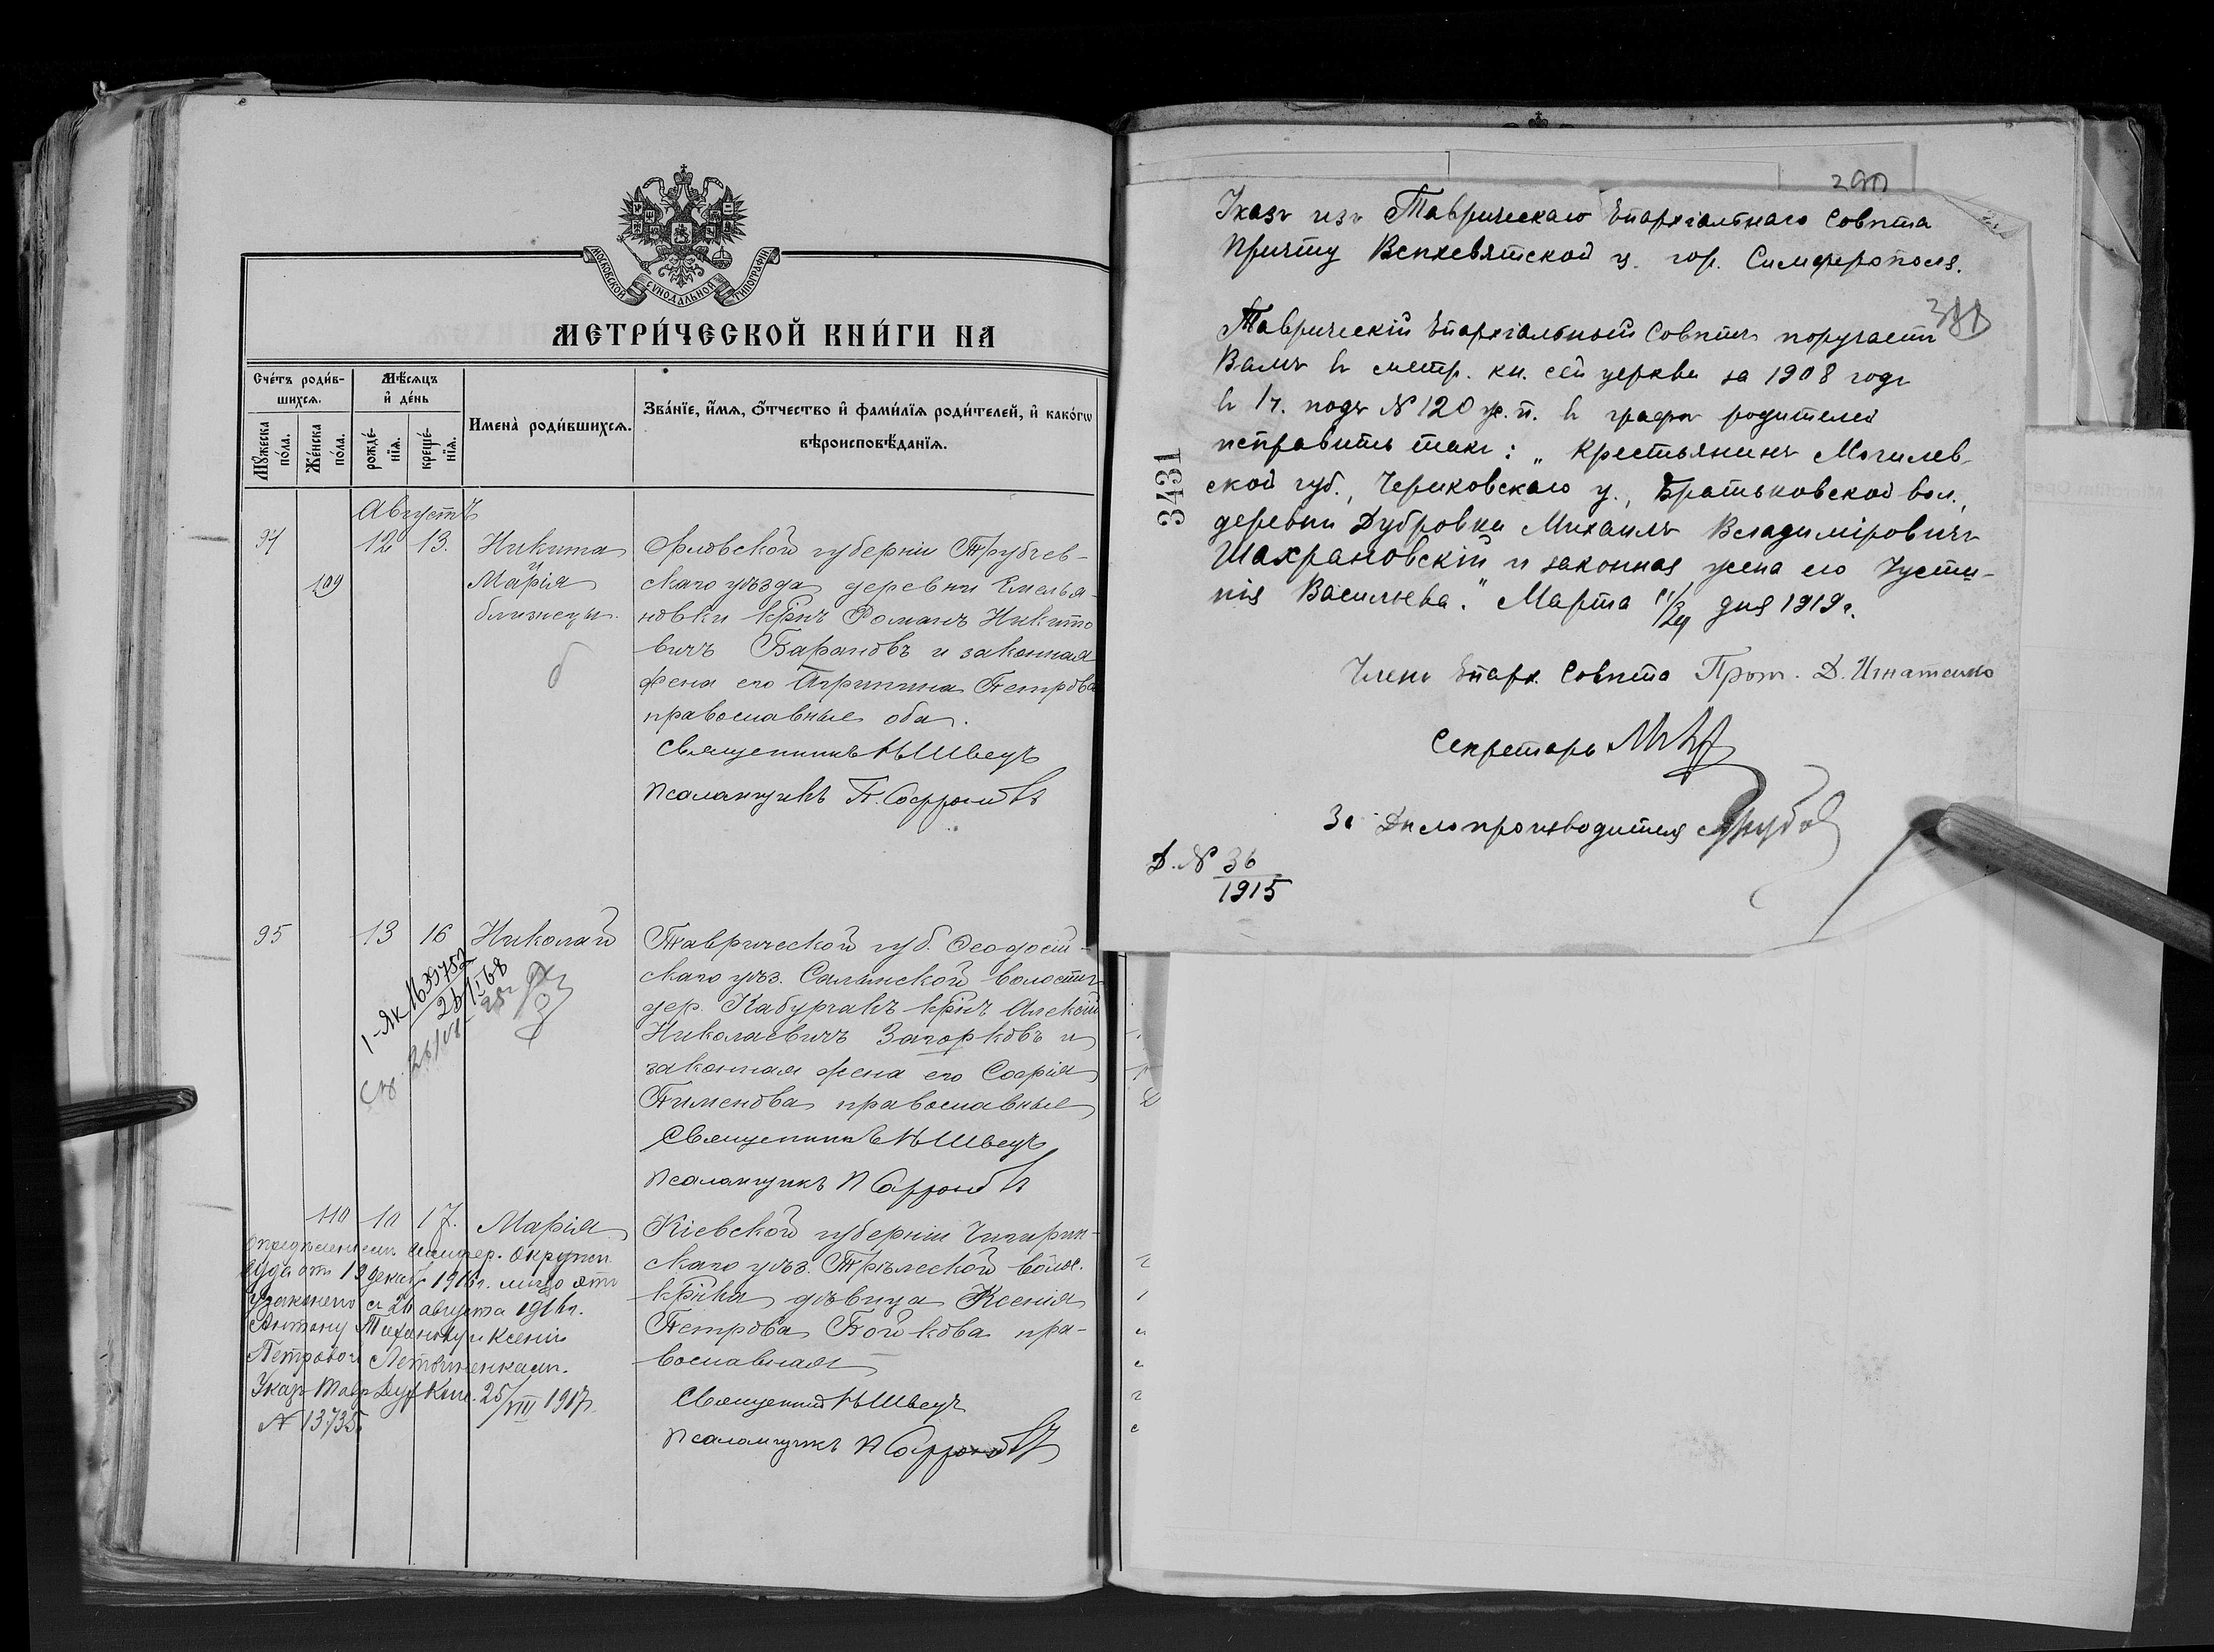 МОСКОВСКОЙ СѴНОДАЛЬНОЙ ТИПОГРАФІИ
МЕТРИ́ЧЕСКОЙ КНИ́ГИ НА
Сче́тъ роди́в-
шихсѧ.
Мѣ́сѧцъ
и҆ де́нь
Имена̀ роди́вшихсѧ.
Зва́нїе, и҆́мѧ, ѻ҆́тчество и҆ фами́лїѧ роди́телей, и҆ како́гѡ
вѣроисповѣ́данїѧ.
Мꙋ́жеска
по́ла.
Же́нска
по́ла.
рожде́-
нїѧ.
креще́-
нїѧ.
Августъ
94 12 13. Никита Орловской губерніи Трубчев-
и
109 Марія скаго уѣзда деревни Емелья-
близнецы. новки кр̃нъ Романъ Никито
вичъ Барановъ и законная
жена его Агрипина Петрова
православные оба.
Священникъ Н Швецъ
Псаломщикъ П. Софроновъ
95 13 16 Николай Таврической губ. Ѳеодосій-
скаго уѣз. Салынской волости
дер. Кабургакъ кр̃нъ Алексѣй
Николаевичъ Загорковъ и
законная жена его Софія
Пименова православные
Священникъ Н Швецъ
Псаломщикъ П Софроновъ
110 10 17. Марія Кіевской губерніи Чигирин-
скаго уѣз. Трѣлеской волос.
кр̃нка дѣвица Ксенія
Петрова Бойкова пра-
вославная
Священникъ Н Швецъ
Псаломщикъ П Софроновъ
Опредѣленіем. Симфер. Окружн.
Суда отъ 19 декаб. 1916г. лицо это
узаконено съ 26 августа 1916г.
Антону и Ксеніи
Петровой Литвиненкам.
Указ Тавр Дух Конс. 25/VIII 1917г.
№ 13735.
290
Указъ изъ Таврическаго Епархіальнаго Совѣта
Причту Всѣхсвятской ц. гор. Симферополя.
388
Таврическій Епархіальный Совѣтъ поручаетъ
Вамъ въ метр. кн. сей церкви за 1908 годъ
въ 1ч. подъ № 120 ж.п. въ графѣ родителей
исправить такъ: „Крестьянинъ Могилев-
ской губ., Чериковскаго у., Братьковской вол.,
деревни Дубровки Михаилъ Владиміровичъ
Шахрановскій и законная жена его Іусти-
нія Васильева." Марта 11/24 дня 1919г.
3431
Членъ Епарх. Совѣта Прот. Д. Игнатенко
Секретарь
За Дѣлопроизводителя
Д. № 36
1915